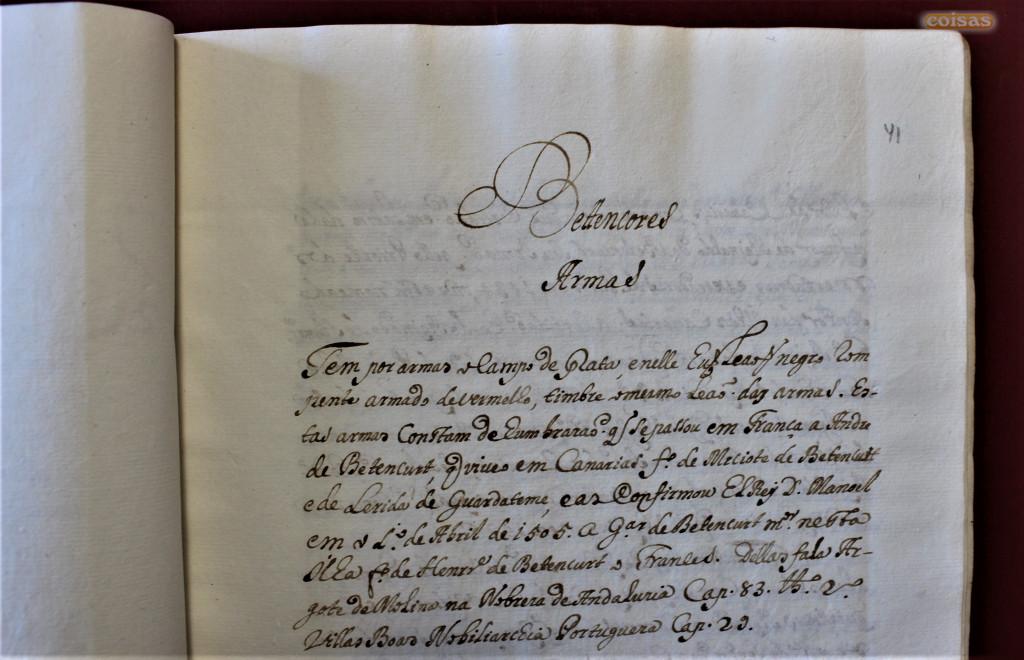 coisas
41
Betencores
Armas
Tem por armas o Campo de Plata, e nelle hum Leaõ negro Rom
pente armado de vermelho, timbre o mesmo Leaõ das armas. Es-
tas armas Constam de hum brazaõ q̃ se passou em França a Andre
de Betencurt, q̃ viveo em Canarias fº. de Meciote de Betencurt
e de Lerida de Guardateme, e as Confirmou ElRey D. Manoel
em o 1.º de Abril de 1505. a Gar. de Betencurt mor. nesta
Ilha fº. de Henrr.º de Betencurt o Frances. Dellas fala Ar-
gote de Molina na Nobreza de Andaluzia Cap. 83. 2.º
Villas Boas Nobiliarchia Portugueza Cap. 29.